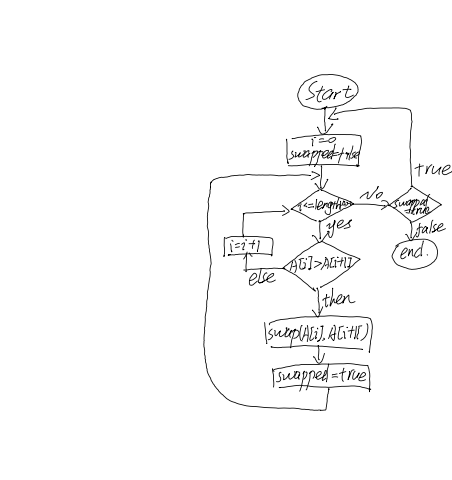 Start
i=0
swapped=false
true
No
i<=length
swapped
=true
yes
false
i=i+1
end.
A[i]>A[i+1]
else
then
swap(A[i], A[i+1])
swapped=true